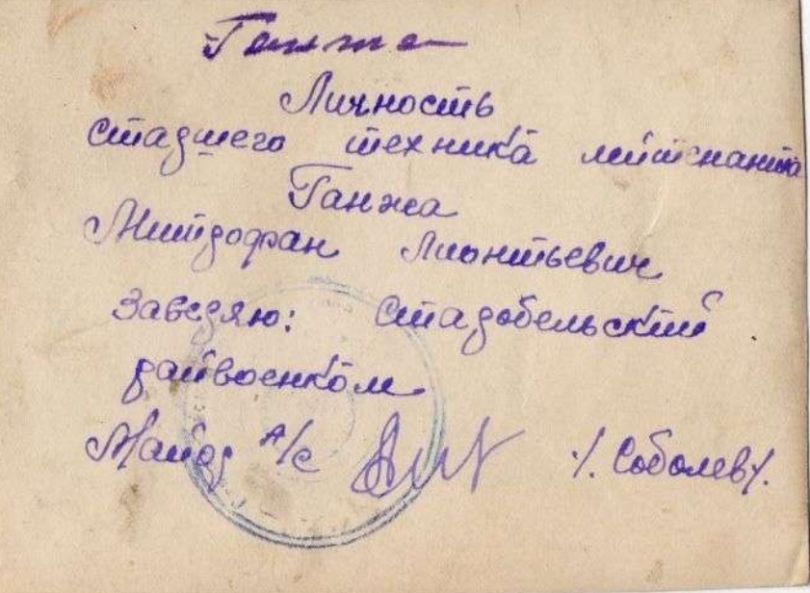 Ганжа
Личность
старшего техника лейтенанта
Ганжа
Митрофан Лионтьевич
заверяю: Старобельский
райвоенком
Майор А/с /. Соболев/.